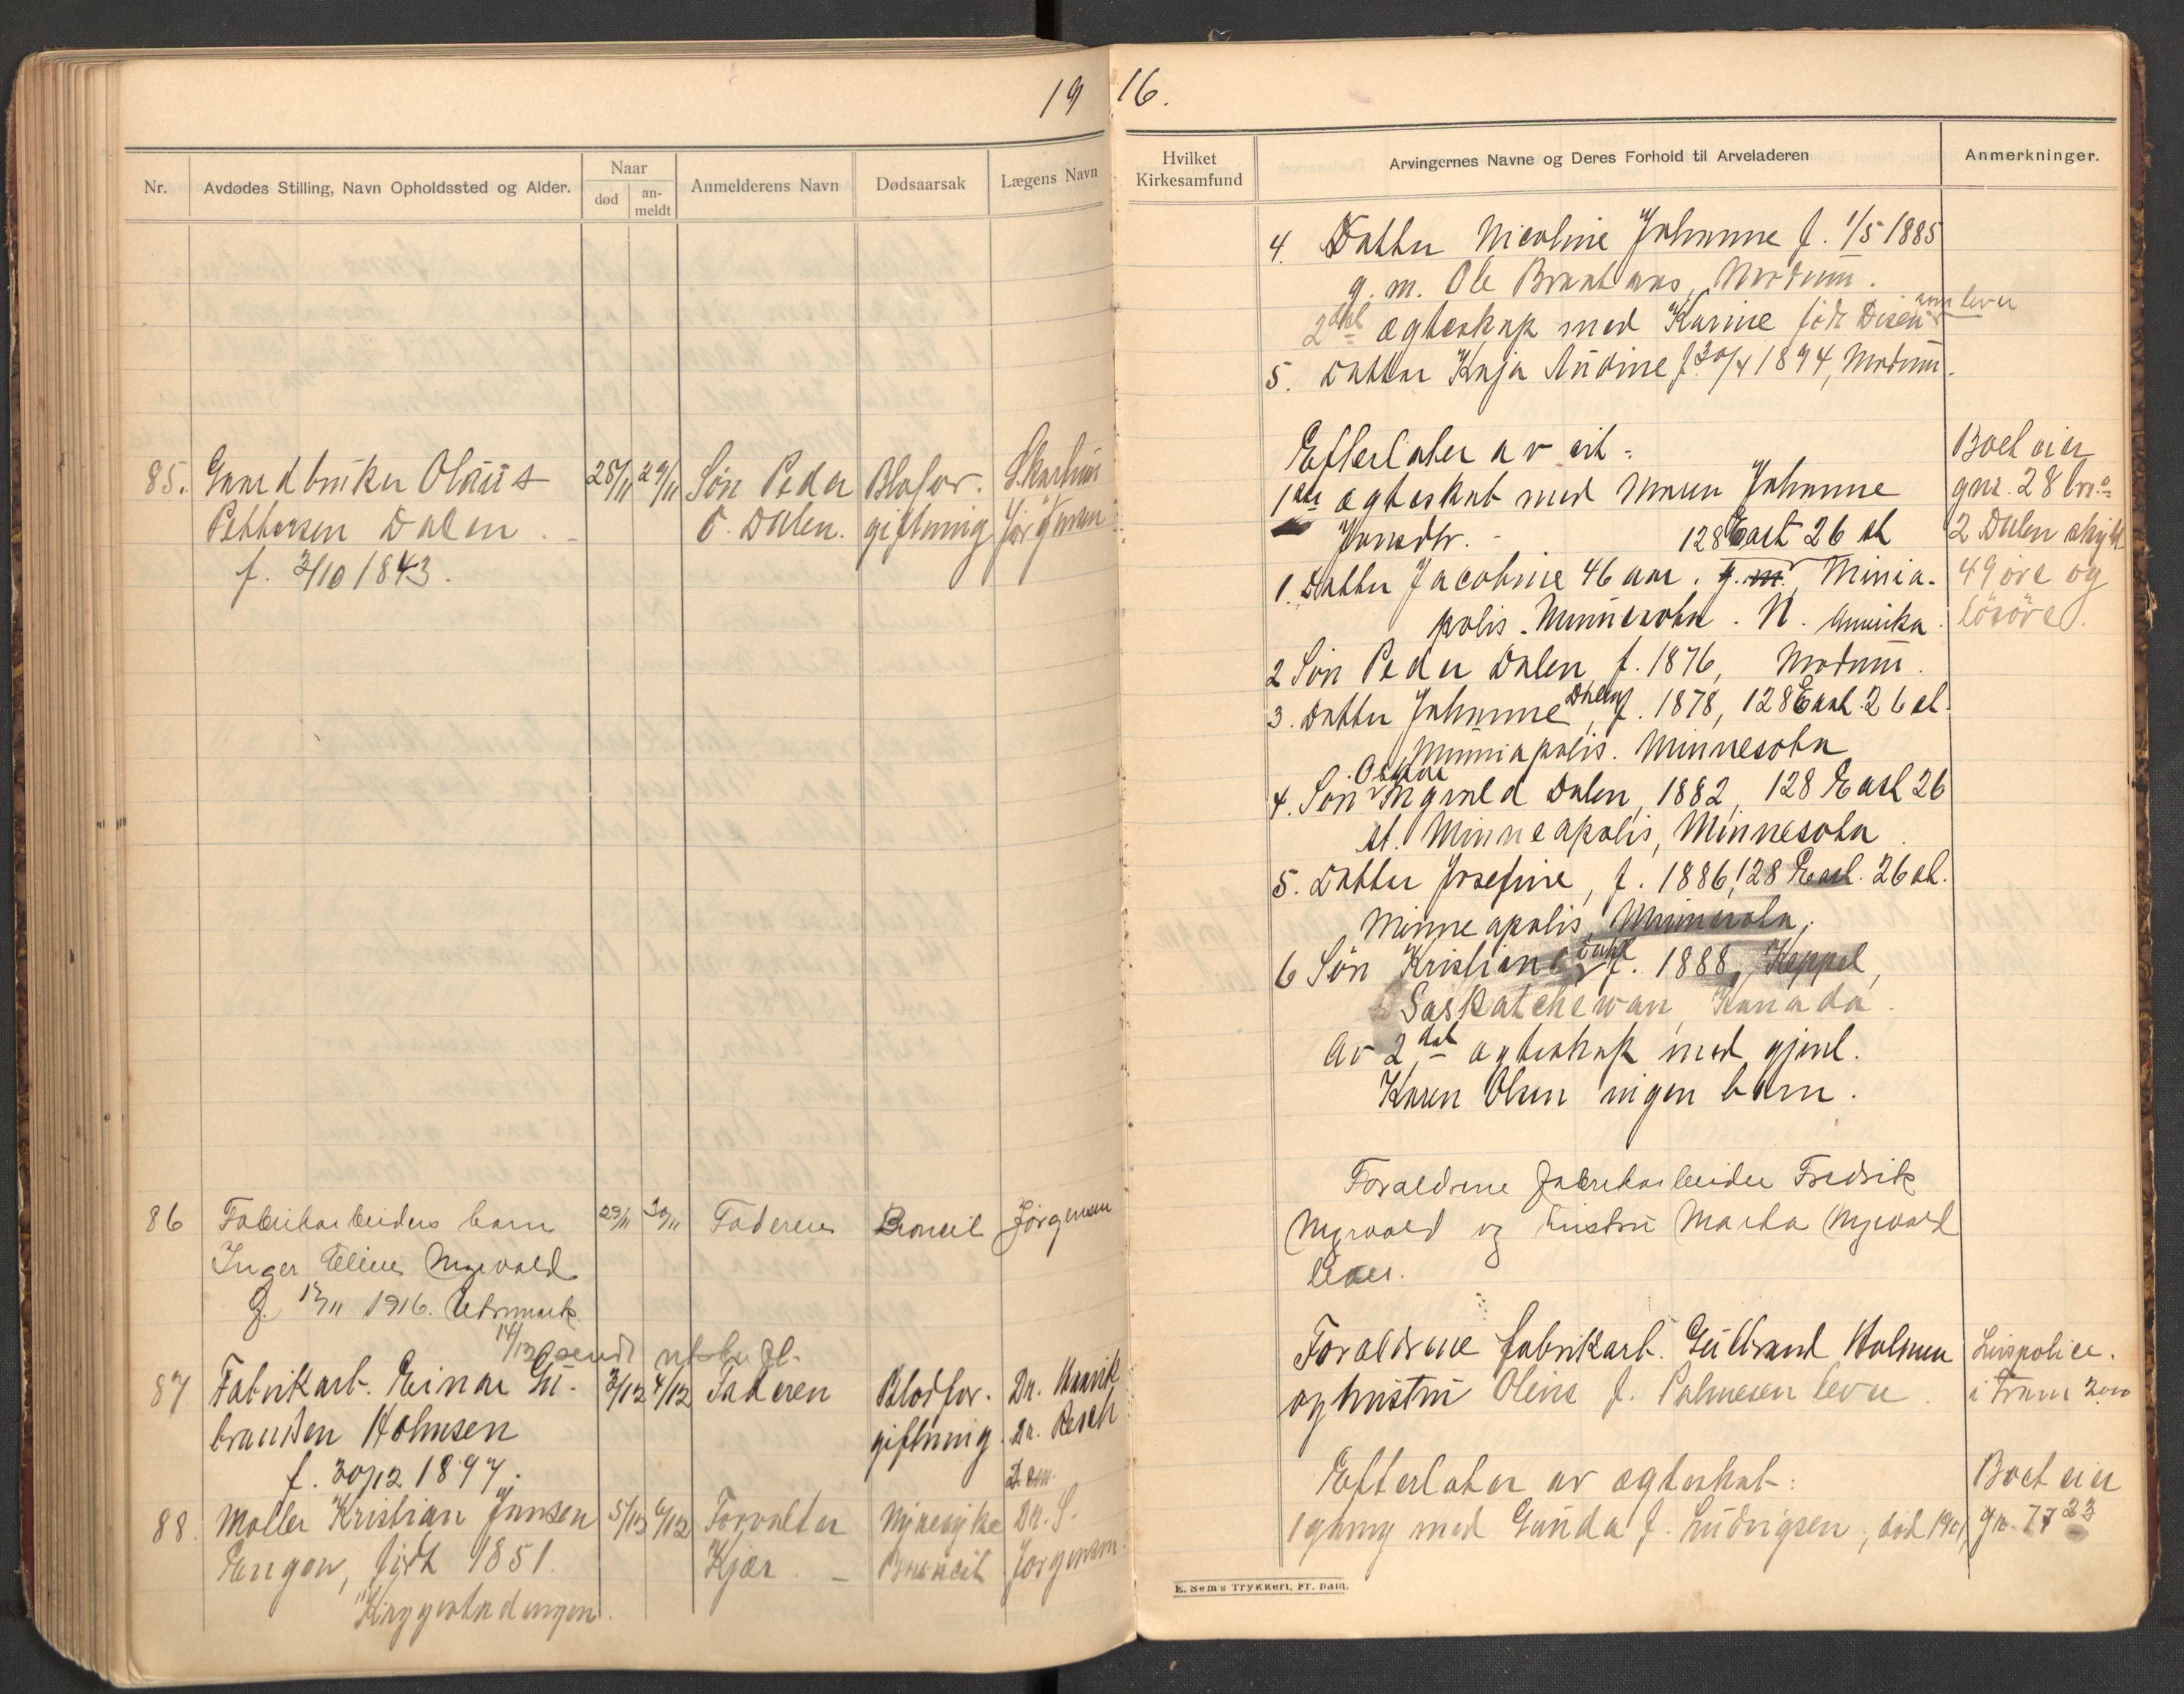 19 16.
Nr.
Avdødes Stilling, Navn Opholdssted og Alder.
Naar
død
an-
meldt
Anmelderens Navn
Dødsaarsak
Lægens Navn
85. Gaardbruker Olaüs 28/11 29/11 Søn Peder Blofor.
Pettersen Dalen. O. Dalen. giftning
f. 3/10 1843.
86 Fabrikarbeiders barn 29/11 30/11 Faderen Broncit Jørgensen
Inger Eline Myrvold
17/11 1916.
14/12 sendt
87 Fabrikarb. Einar Gu- 3/12 4/12 Faderen Blodfor. Dr.
brandsen Holmsen giftning. Dr. Resch
f. 30/12 1897.
88. Møller Kristian Jansen 5/12 6/12 Forvalter Nyresyke Dr. S.
Engen, født 1851. Kjær. Broncit Jørgensen
Hvilket
Kirkesamfund
Arvingernes Navne og Deres Forhold til Arveladeren
Anmerkninger.
4. Datter Nicoline Johanne f. 1/5 1885
g. m. Ole Braataas, Modum.
som lever
2det egteskap med Karine født Disen
5. Datter Kaja Andine f. 30/4 1894, Modum.
Efterlater av eit: Boet eier
1ste egteskab med Maren Johanne gnr. 28 br.
Jonsdtr. 128 East 26 st 2 Dalen skyld
1. Datter Jacobine 46 aar. g. m. Minia- 49 øre og
polis. Minnesota. N. Amerika. løsøre.
2 Søn Peder Dalen f. 1876, Modum.
3. Datter Johanne Dalen, f. 1878, 128 East. 26 st.
Minniapolis. Minnesota
Oskar
4. Søn Ingvald Dalen, 1882, 128 East 26
st. Minneapolis, Minnesota.
5. Datter Josefine, f. 1886, 128 East. 26 st.
Minneapolis, Minnesota.
6 Søn Kristian f. 1888, Keppel,
Saskatchewan, Kanada.
Av 2det egteskap med gjenl.
Karen Olsen ingen barn.
Forældrene fabrikarbeider Fredrik
Myrvold og hustru Marta Myrvold
lever.
Forældrene fabrikarb. Gulbrand Holmen Livspolice.
og hustru Oline f. Palmesen lever. i Fram 2000
Efterlater av egteskab: Boet eier
1 gang med Gunda f. Ludvigsen, død 1901, gn. 77 23
E. Sem's Trykkeri, Fr. hald.